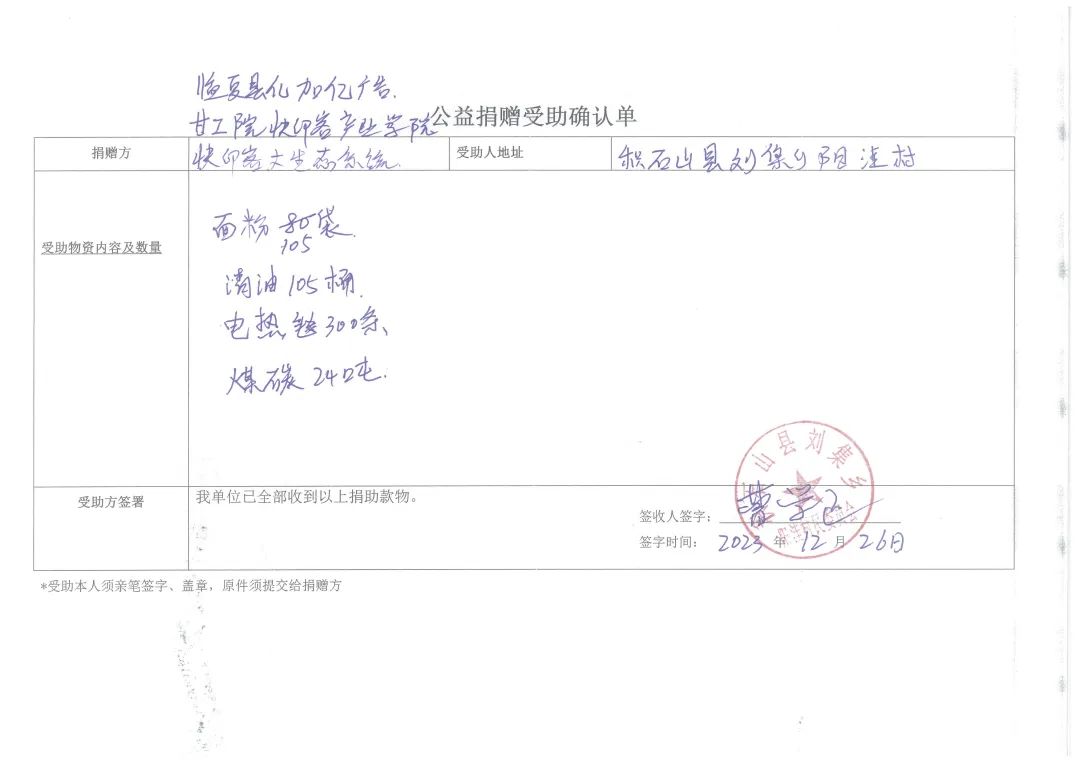 临夏县亿加亿广告.
公益捐赠受助确认单
甘工院快印客产业学院
捐赠方
快印客大生态系统.
受助人地址
积石山县刘集乡阳洼村
受助物资内容及数量
面粉 80袋.
105
清油 105桶.
电热毯 300条、
煤碳 24吨.
山县刘集乡
受助方签署
我单位已全部收到以上捐助款物。
签收人签字：
签字时间： 2023 年 12 月 26日
*受助本人须亲笔签字、盖章，原件须提交给捐赠方